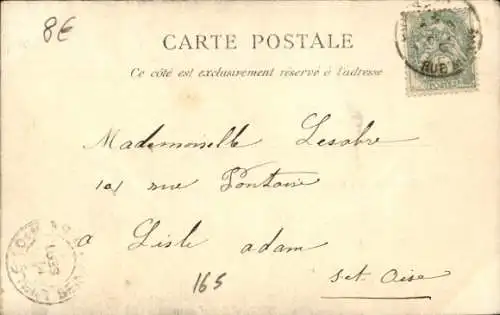 8€
CARTE POSTALE
Ce côté est exclusivement réservé à l'adresse
Mademoiselle Lesobre
101 rue Pontoise
a Lisle adam
Set Oise
165